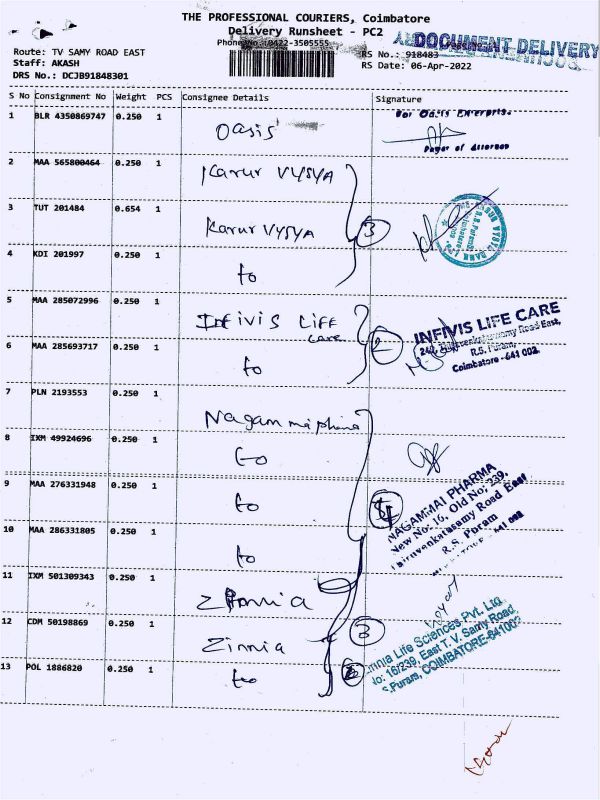 THE PROFESSIONAL COURIERS, Coimbatore
Delivery Runsheet - PC2
Phone No. :0422-3505555
DOCUMENT DELIVERY
Route: TV SAMY ROAD EAST
RS No.: 918483
Staff: AKASH
RS Date: 06-Apr-2022
DRS No.: DCJB91848301
S No Consignment No Weight PCS Consignee Details Signature
1 BLR 4350869747 0.250 1 Oasis
2 MAA 565800464 0.250 1 Karur VYSYA
3 TUT 201484 0.654 1 Karur VYSYA 3
4 KDI 201997 0.250 1 to
5 MAA 285072996 0.250 1 Infivis LIFE care
INFIVIS LIFE CARE
R.S. Puram,
Coimbatore - 641 002.
6 MAA 285693717 0.250 1 to 2
7 PLN 2193553 0.250 1
8 IXM 49924696 0.250 1 to
9 MAA 276331948 0.250 1 to
NAGAMMAI PHARMA
New No: 16, Old No; 239,
Thiruvenkatasamy Road East
R.S. Puram
10 MAA 286331805 0.250 1 to
11 IXM 501309343 0.250 1 Zinnia
12 CDM 50198869 0.250 1 Zinnia 3
13 POL 1886820 0.250 1 to
Zinnia Life Sciences Pvt. Ltd
No: 16/239, East T. V. Samy Road,
R.S.Puram, COIMBATORE-641002